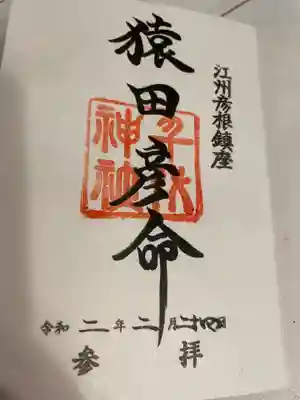 江州彦根鎮座
猿田彦命
千代神社
令和二年二月二十四日
参拝